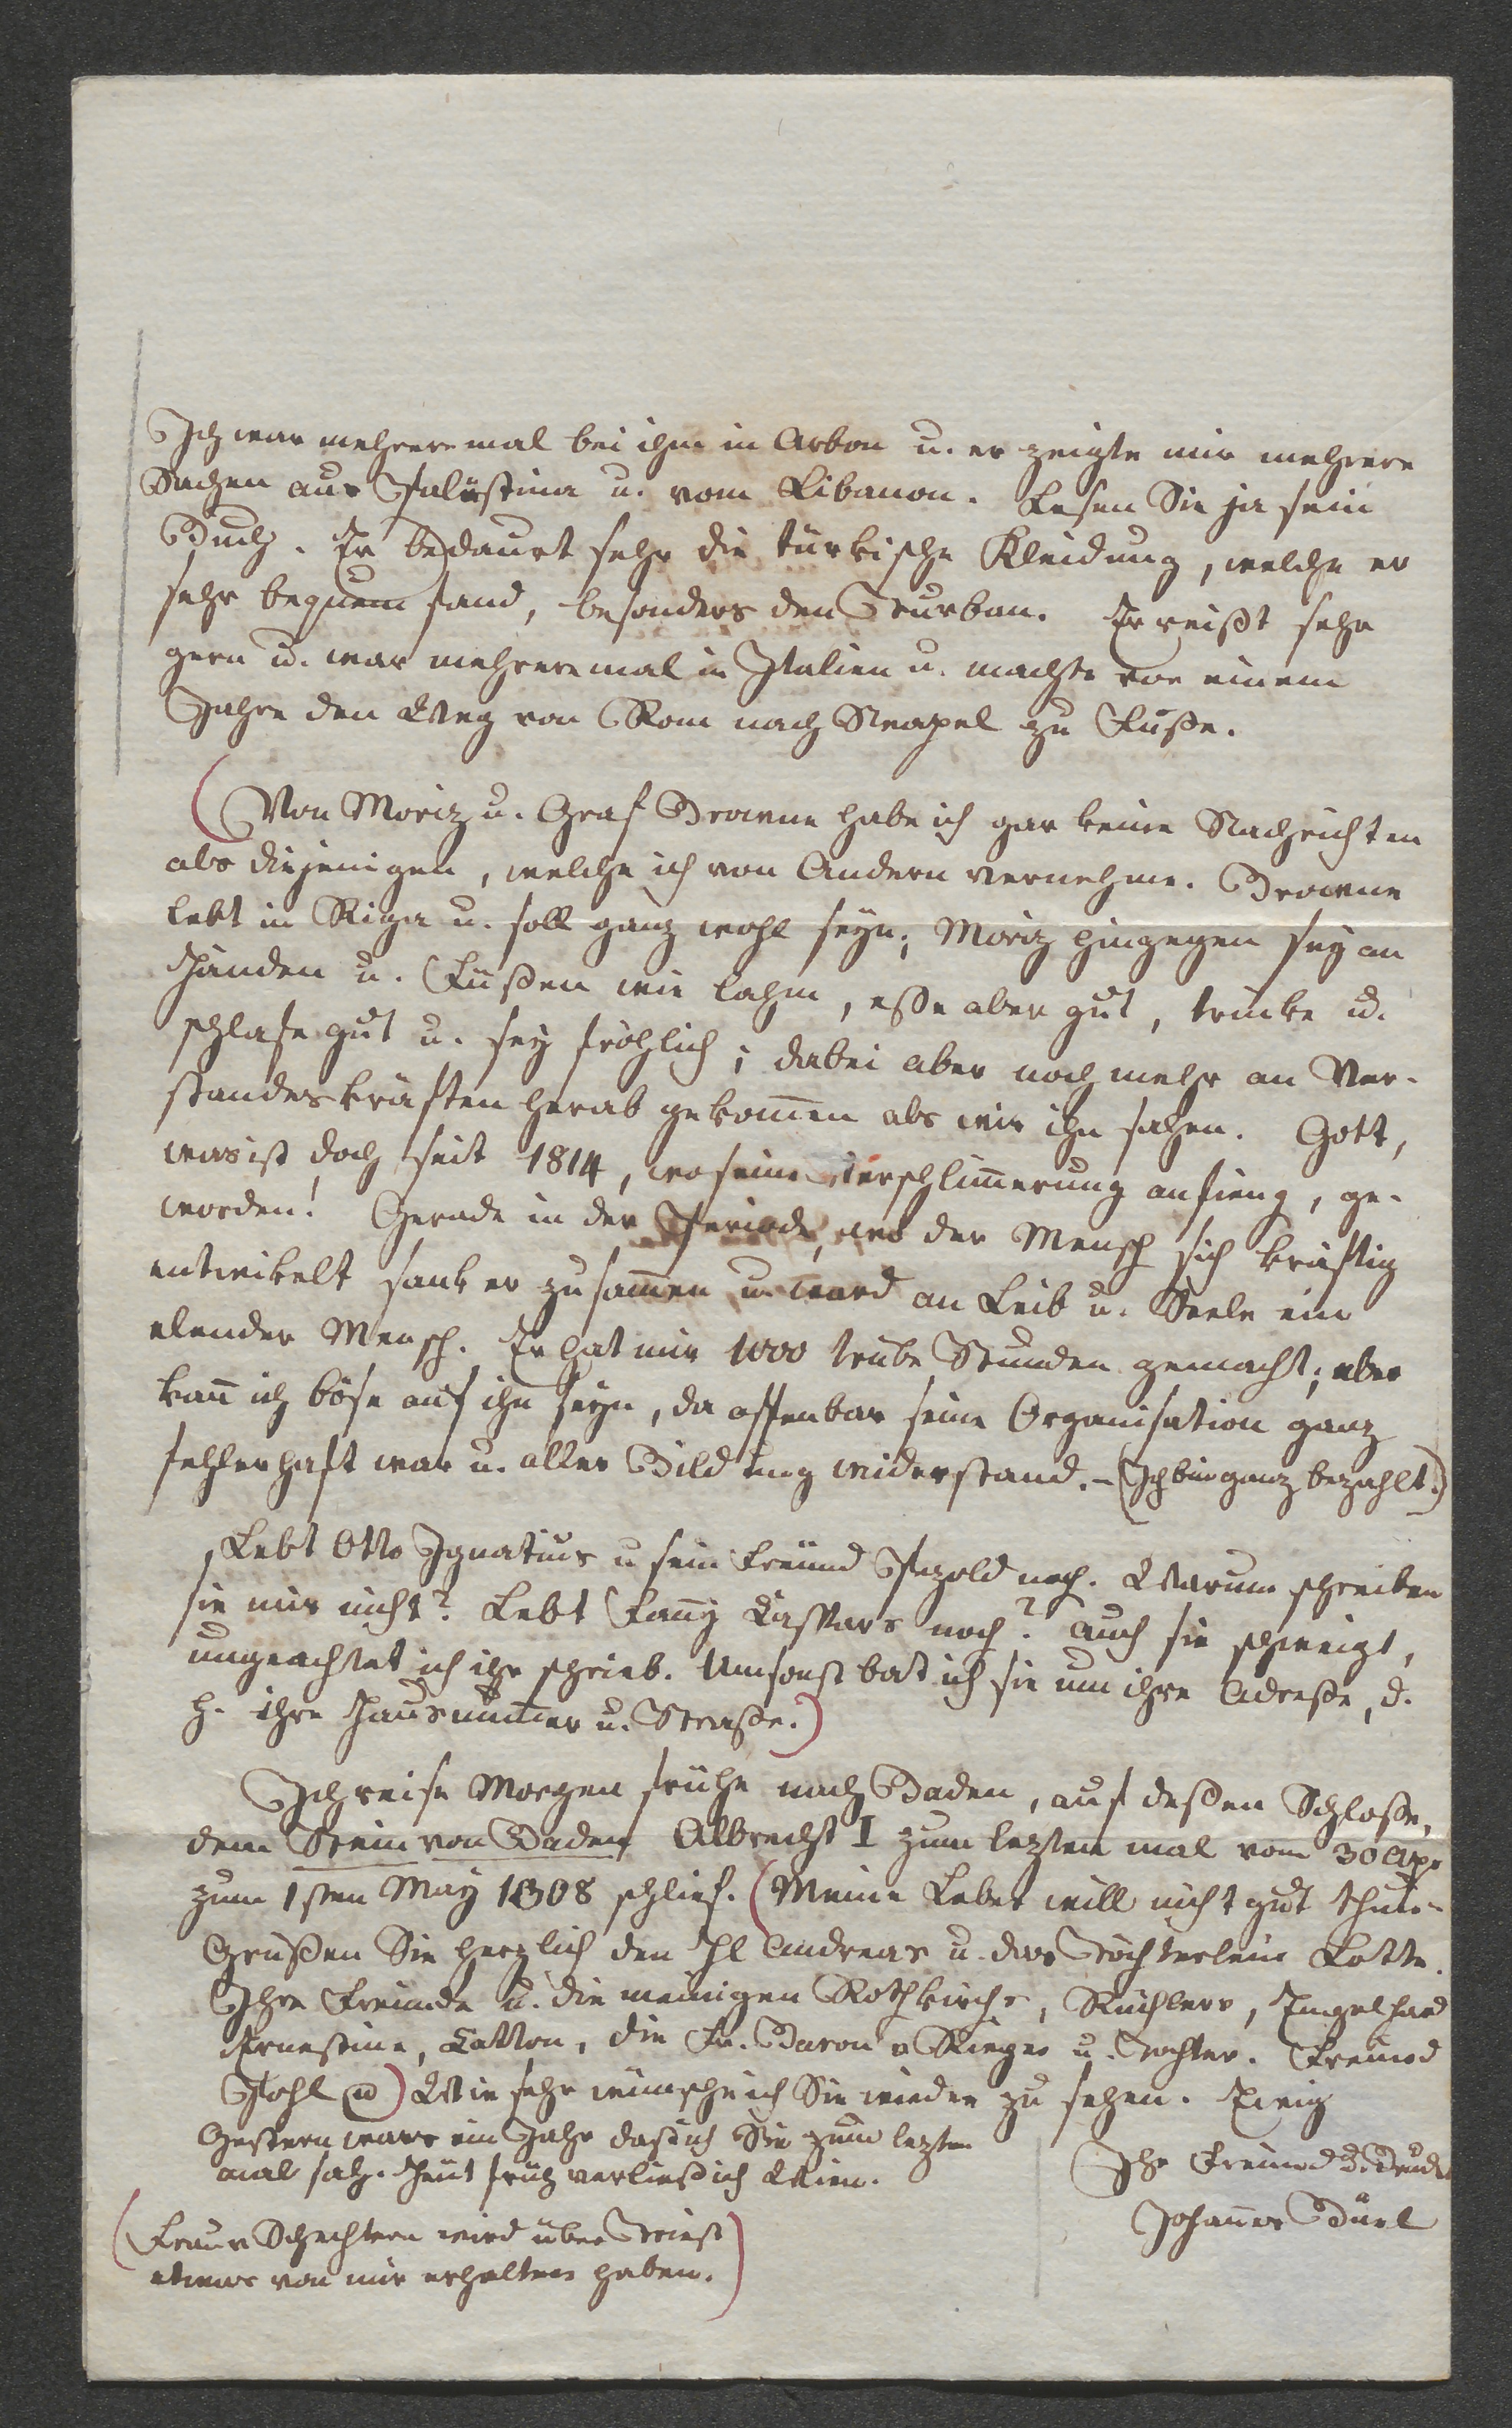 Ich war mehreremal bei ihm in Arbon u. er zeigte mir mehrere
Sachen aus Palästina u. vom Libanon. Lesen Sie ja sein
Buch. Er bedaurt sehr die türkische Kleidung, welche er
sehr bequem fand, besonders den Turban. Er reißt sehr
gern u. war mehreremal in Italien u. machte vor einem
Jahre den Weg von Rom nach Neapel zu Fuße.
(Von Moriz u. Graf Browne habe ich gar keine Nachrichten
als diejenigen, welche ich von Andern vernehme. Browne
lebt in Riga u. soll ganz wohl seyn; Moriz hingegen sey an
Händen u. Füßen wie lahm, eße aber gut, trinke u.
schlafe gut u. sey fröhlich; dabei aber noch mehr an Ver-
standeskräften herab gekom̄en als wir ihn sahen. Gott,
was ist doch seit 1814, wo seine Verschlim̄erung anfieng, ge-
worden! Gerade in der Periode, wo der Mensch sich kräftig
entwikelt sank er zusam̄en u. ward an Leib u. Seele ein
elender Mensch. Er hat mir 1000 trübe Stunden gemacht; aber
kan̄ ich böse auf ihn seyn, da offenbar seine Organisation ganz
fehlerhaft war u. aller Bildung widerstand. – (Ich bin ganz bezahlt.)
Lebt Otto Ignatius u sein Freund Pezold noch. Warum schreiben
sie mir nicht? Lebt Fan̄y Caspars noch? auch sie schweigt,
ungeachtet ich ihr schrieb. Umsonst bat ich sie um ihre Adreße, d.
h. ihre Hausnum̄er u. Straße.)
Ich reise Morgen frühe nach Baden, auf deßen Schloße,
dem Stein von Baden Albrecht I zum lezten mal vom 30 Apr
zum 1sten May 1308 schlief. (Meine Leber will nicht gut thun.
Grüßen Sie herzlich den Hl Andreas u. das Töchterlein Lotte.
Ihre Freunde u. die meinigen Rothkirchs, Büchlers, Engelhard
Ernestine, Cotton, die Fr. Baron v Rieger u. Tochter. Freund
Pohl u) Wie sehr wünsche ich Sie wieder zu sehen. Ewig
Gestern wars ein Jahr daß ich Sie zum lezten
mal sah. Heut früh verließ ich Wien.
Ihr Freund u. Bruder
Johannes Bürl
(Frau v Schechtern wird über Triest
etwas von mir erhalten haben.)